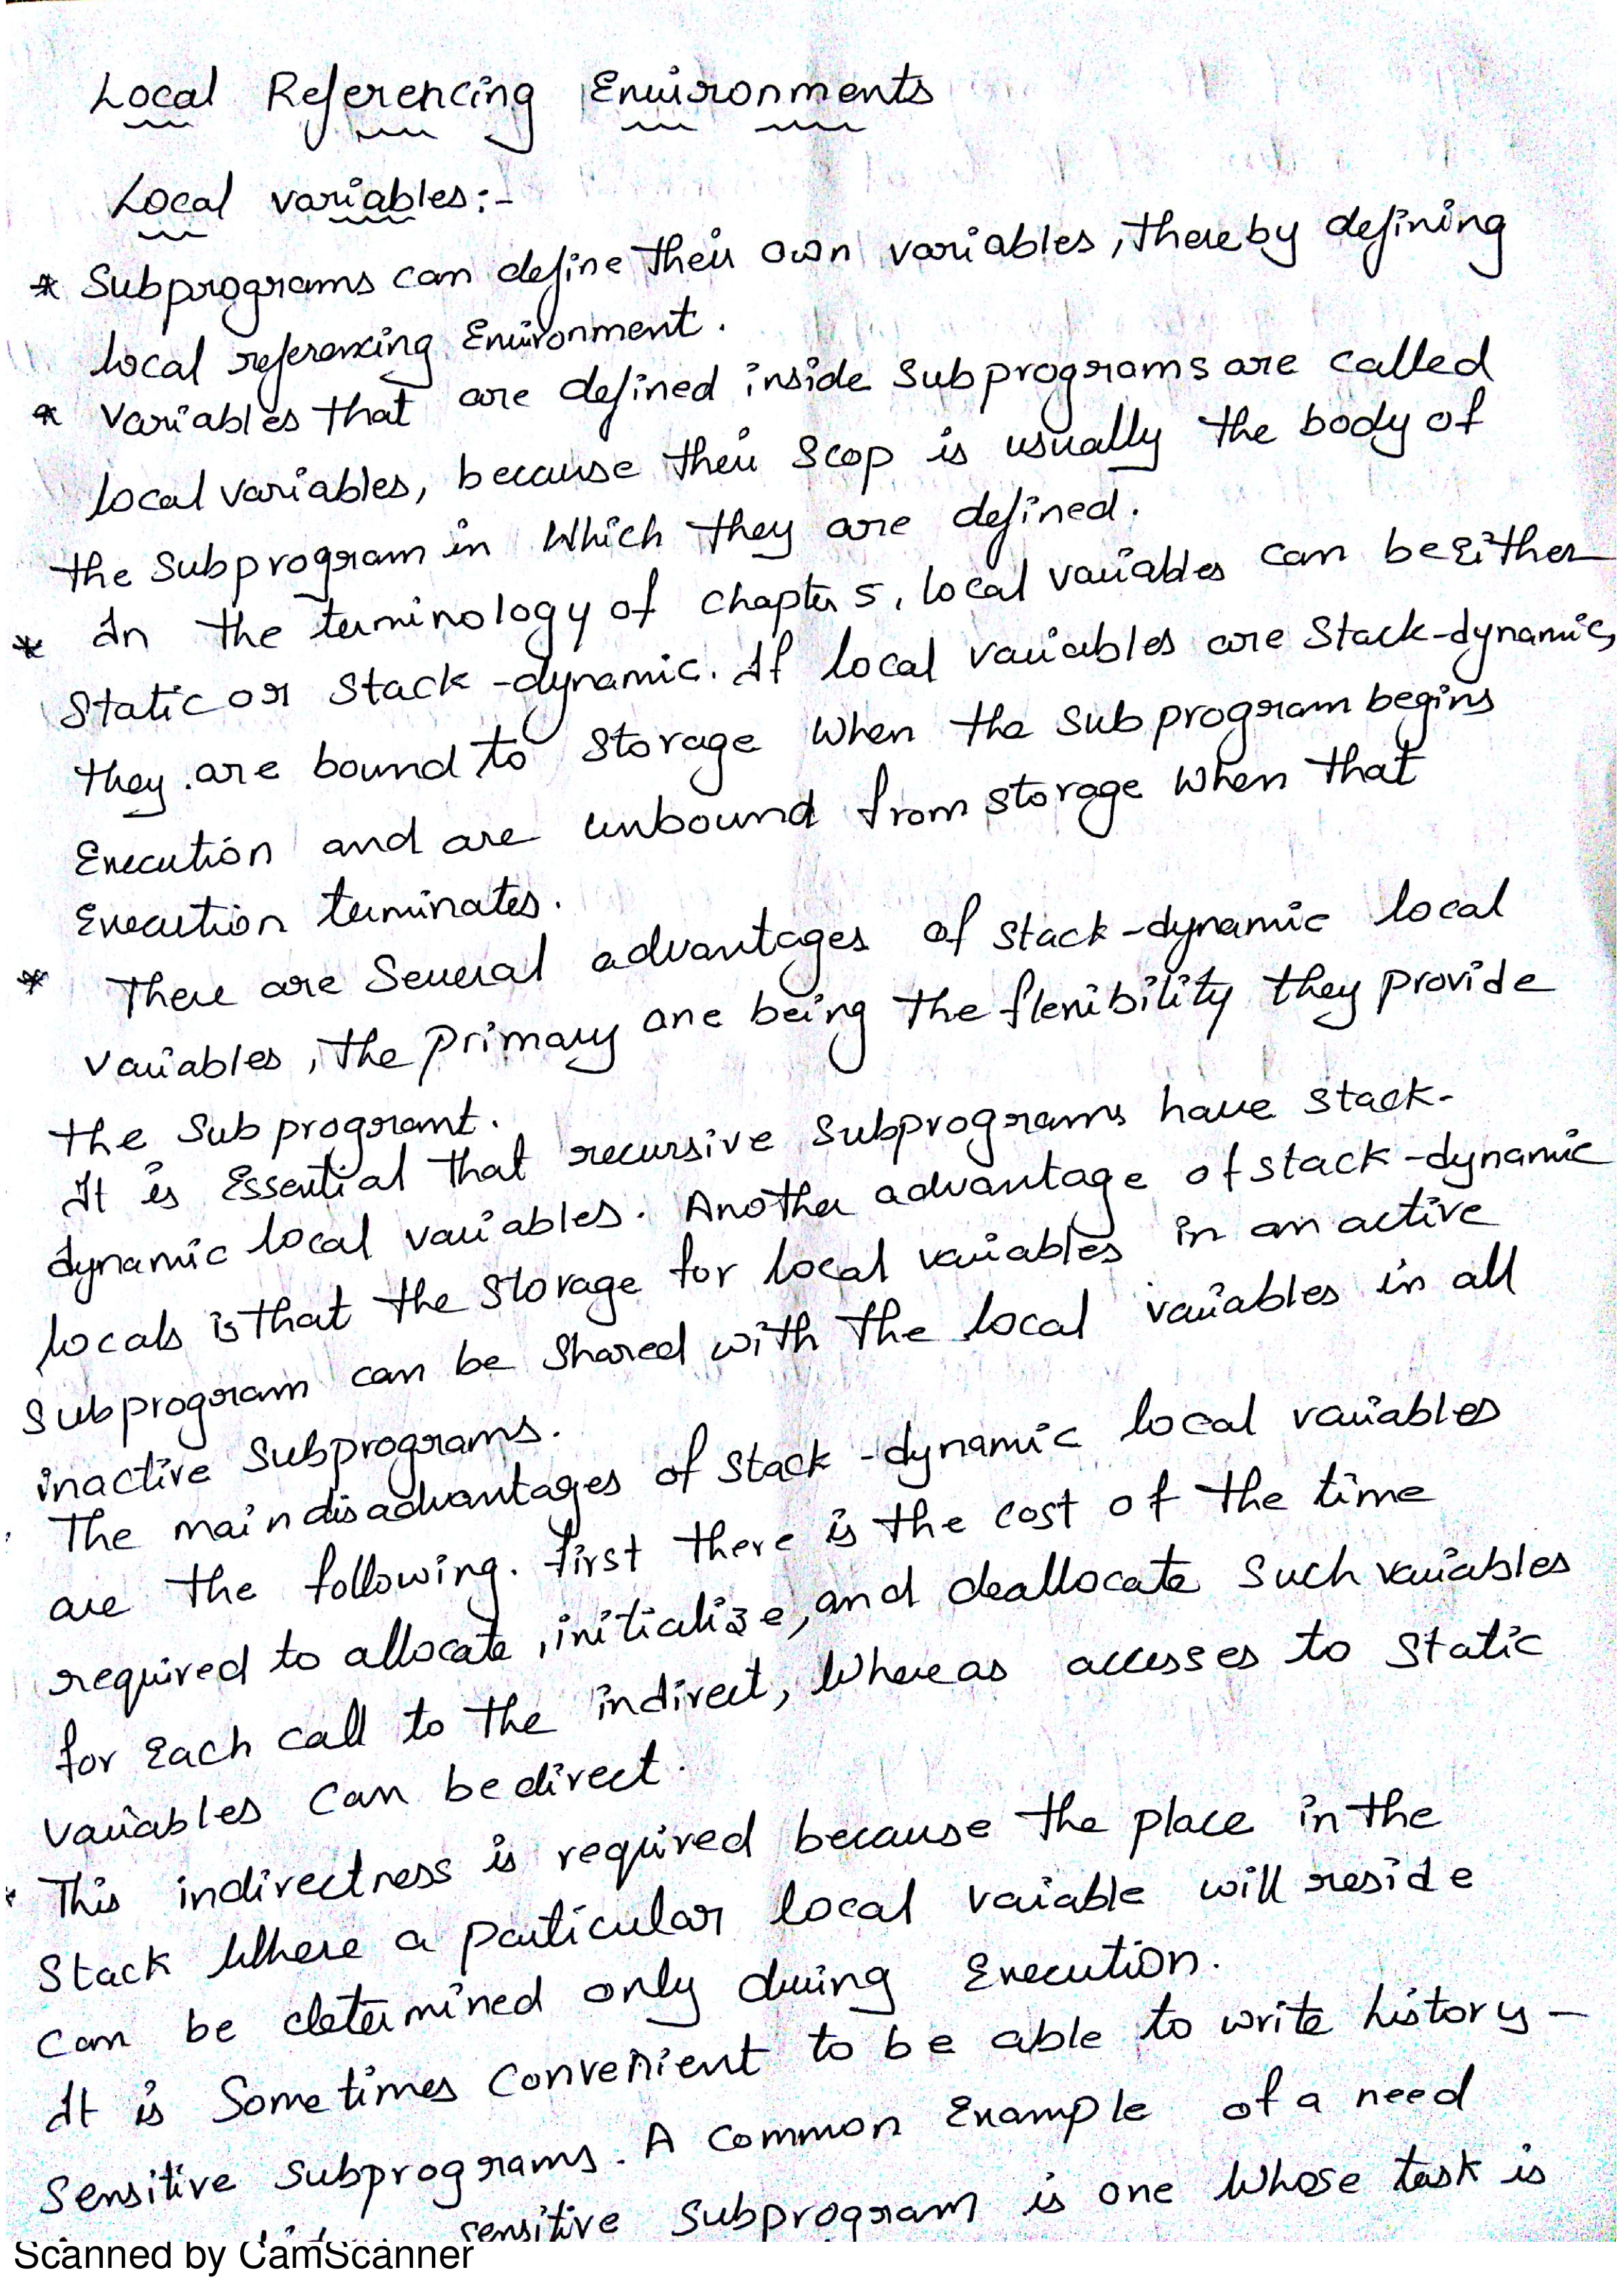 Local Referencing Environments
Local variables:-
* Subprograms can define their own variables, thereby defining
local referencing Environment.
* Variables that are defined inside Subprograms are called
local variables, because their Scop is usually the body of
the Subprogram in Which they are defined.
* In the terminology of chapter 5, local variables can be Either
Static or Stack-dynamic. If local variables are Stack-dynamic,
they are bound to Storage When the Subprogram begins
Execution and are unbound from storage When that
Execution terminates.
* There are Several advantages of Stack-dynamic local
variables, the primary one being the flexibility they provide
the Subprogramt.
It is Essential that recursive Subprograms have Stack-
dynamic local variables. Another advantage of stack-dynamic
locals is that the Storage for local variables in an active
Subprogram can be Shared with the local variables in all
inactive Subprograms.
The main disadvantages of Stack-dynamic local variables
are the following. first there is the cost of the time
required to allocate, initialize, and deallocate Such variables
for Each call to the indirect, Whereas accesses to Static
variables can be direct.
* This indirectness is required because the place in the
Stack Where a particular local variable will reside
can be determined only during Execution.
It is Sometimes convenient to be able to write history-
Sensitive Subprograms. A common Example of a need
sensitive Subprogram is one Whose task is
Scanned by CamScanner